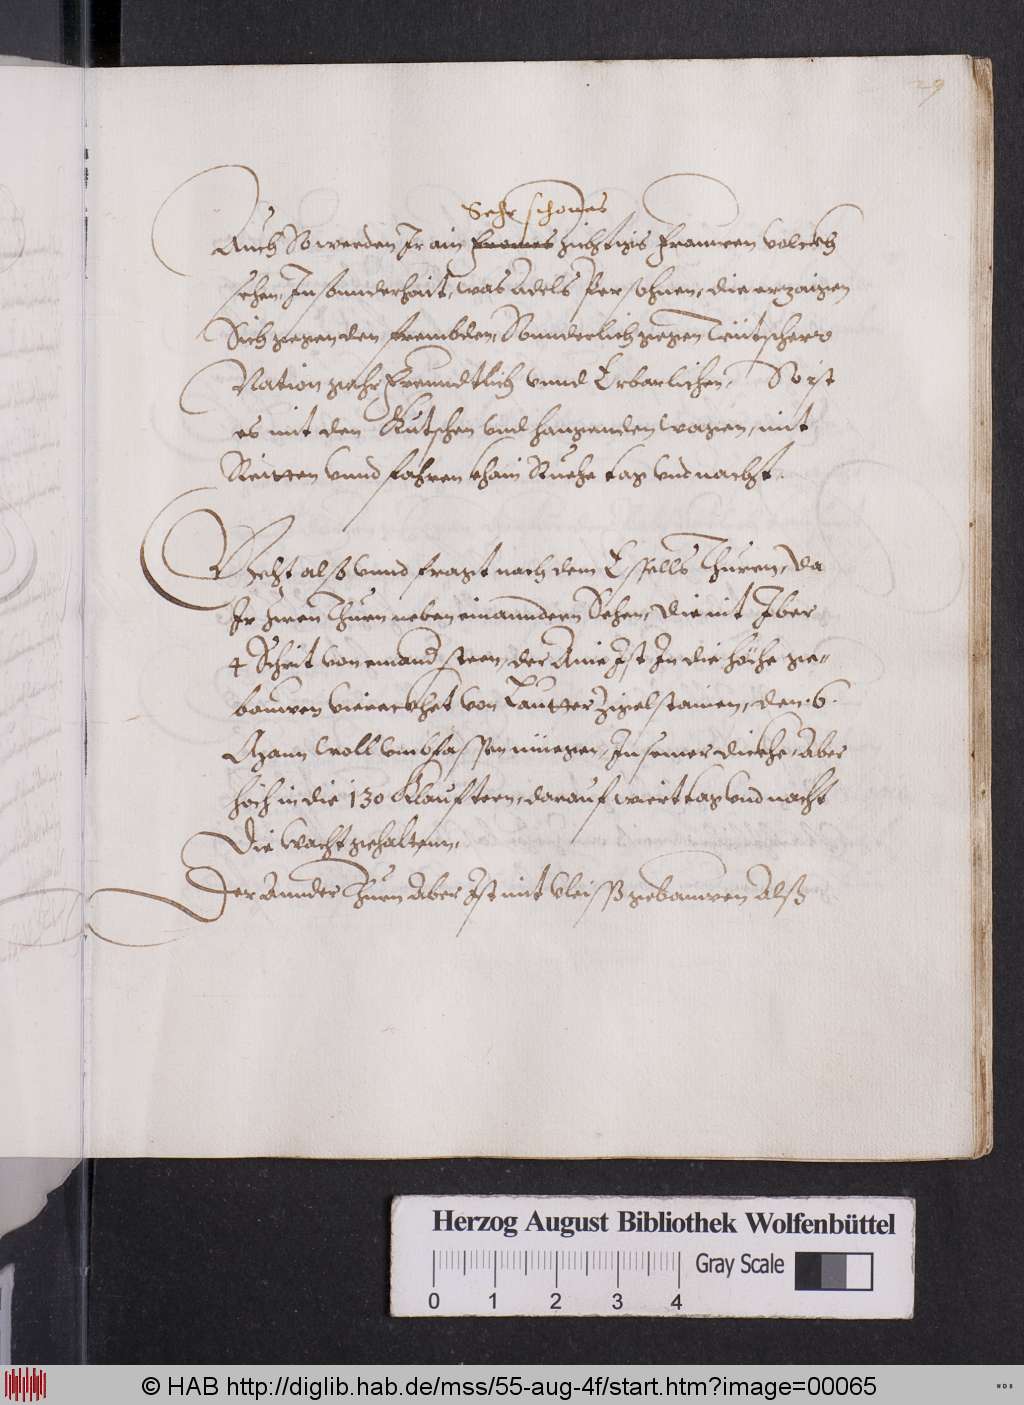 29
Sehr schones
Auch So werden Ir ain fromes zichtigs frauwen volckh
sehen, Insonnderhait, was Adels Persohnen, die erzaigen
Sich gegen den frembden, Sonnderlich gegen Teütscher
Nation gahr freundtlich vnnd Erbarlichen, So ist
es mit den Kutschen vnd hangenden wagen, mit
Reitten vnnd fahren khain Ruehe tag vnd nacht.
Gehet alß vnnd fragt nach dem Essells Thuren, da
Ir zwen Thuren neben einanndern Sehen, die nit Iber
4 Schrit von einand steen, der Aine Ist In die höhe ge-
bauwen viereckhet von Lautter Zigelstainen, den .6.
Mann woll vmbfassen müegen, In seiner dickhe, Aber
hoch in die 130 Klaufteren, darauf wiert tag vnd nacht
Die wacht gehaltenn,
Der Annder Thuren Aber Ist mit vleiss gebauwen Alß
Herzog August Bibliothek Wolfenbüttel
Gray Scale
0 1 2 3 4
© HAB http://diglib.hab.de/mss/55-aug-4f/start.htm?image=00065